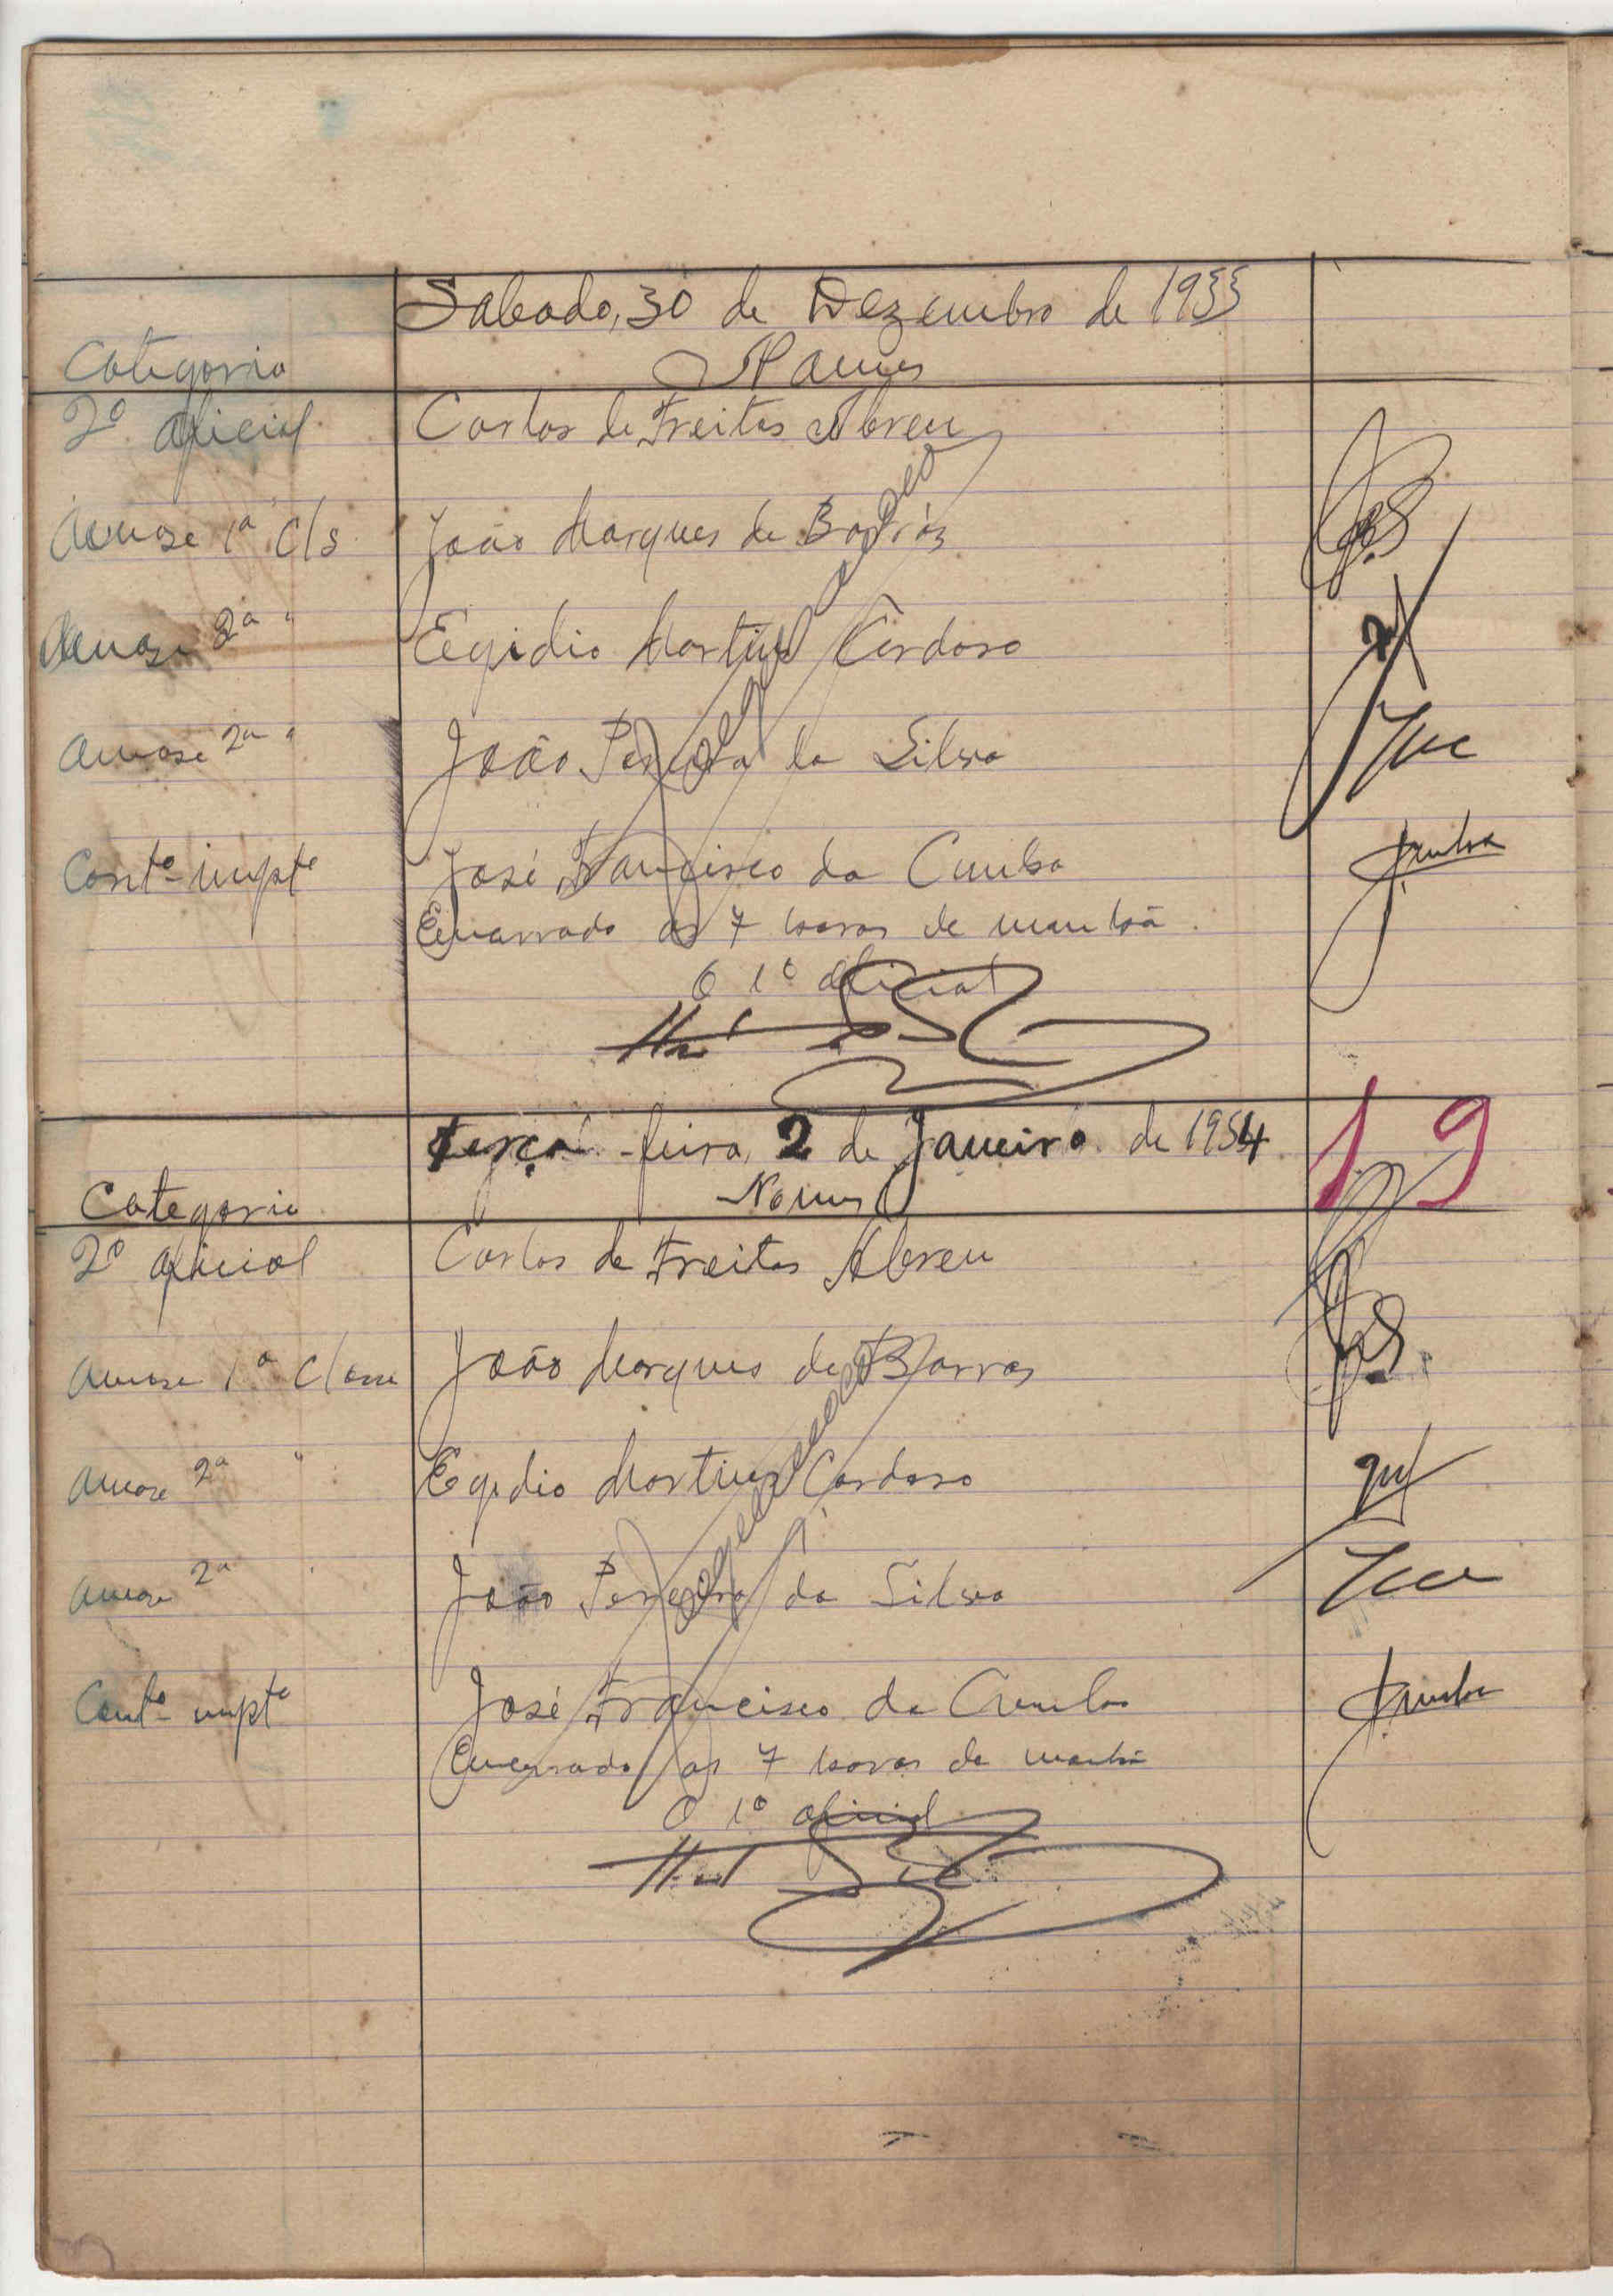 Sabado, 30 de Dezembro de 1933
Categoria Nomes
2º oficial Carlos de Freitas Abreu
1ª Cls João Marques de Barros
2ª " Egidio Martins Cardoso
2ª " João Pereira da Silva
Contº impte José Francisco da Cunha Cunha
Encerrado as 7 horas de manhã.
O 1º oficial
terça-feira, 2 de Janeiro de 1934 19
Categoria Nomes
2º oficial Carlos de Freitas Abreu
1ª Classe João Marques de Barros
2ª " Egidio Martins Cardoso
2ª João Pereira da Silva
Contº impte José Francisco da Cunha Cunha
Encerrado as 7 horas da manhã
O 1º oficial